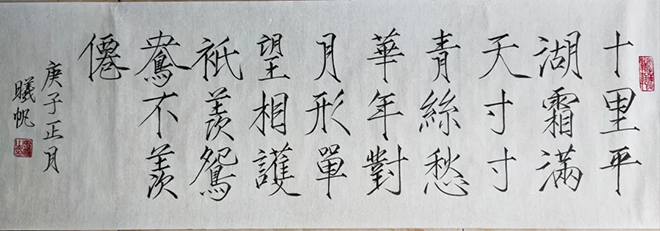 十里平
湖霜滿
天寸寸
青絲愁
華年對
月形單
望相護
祇羨鴛
鴦不羨
僊
庚子正月
曦帆